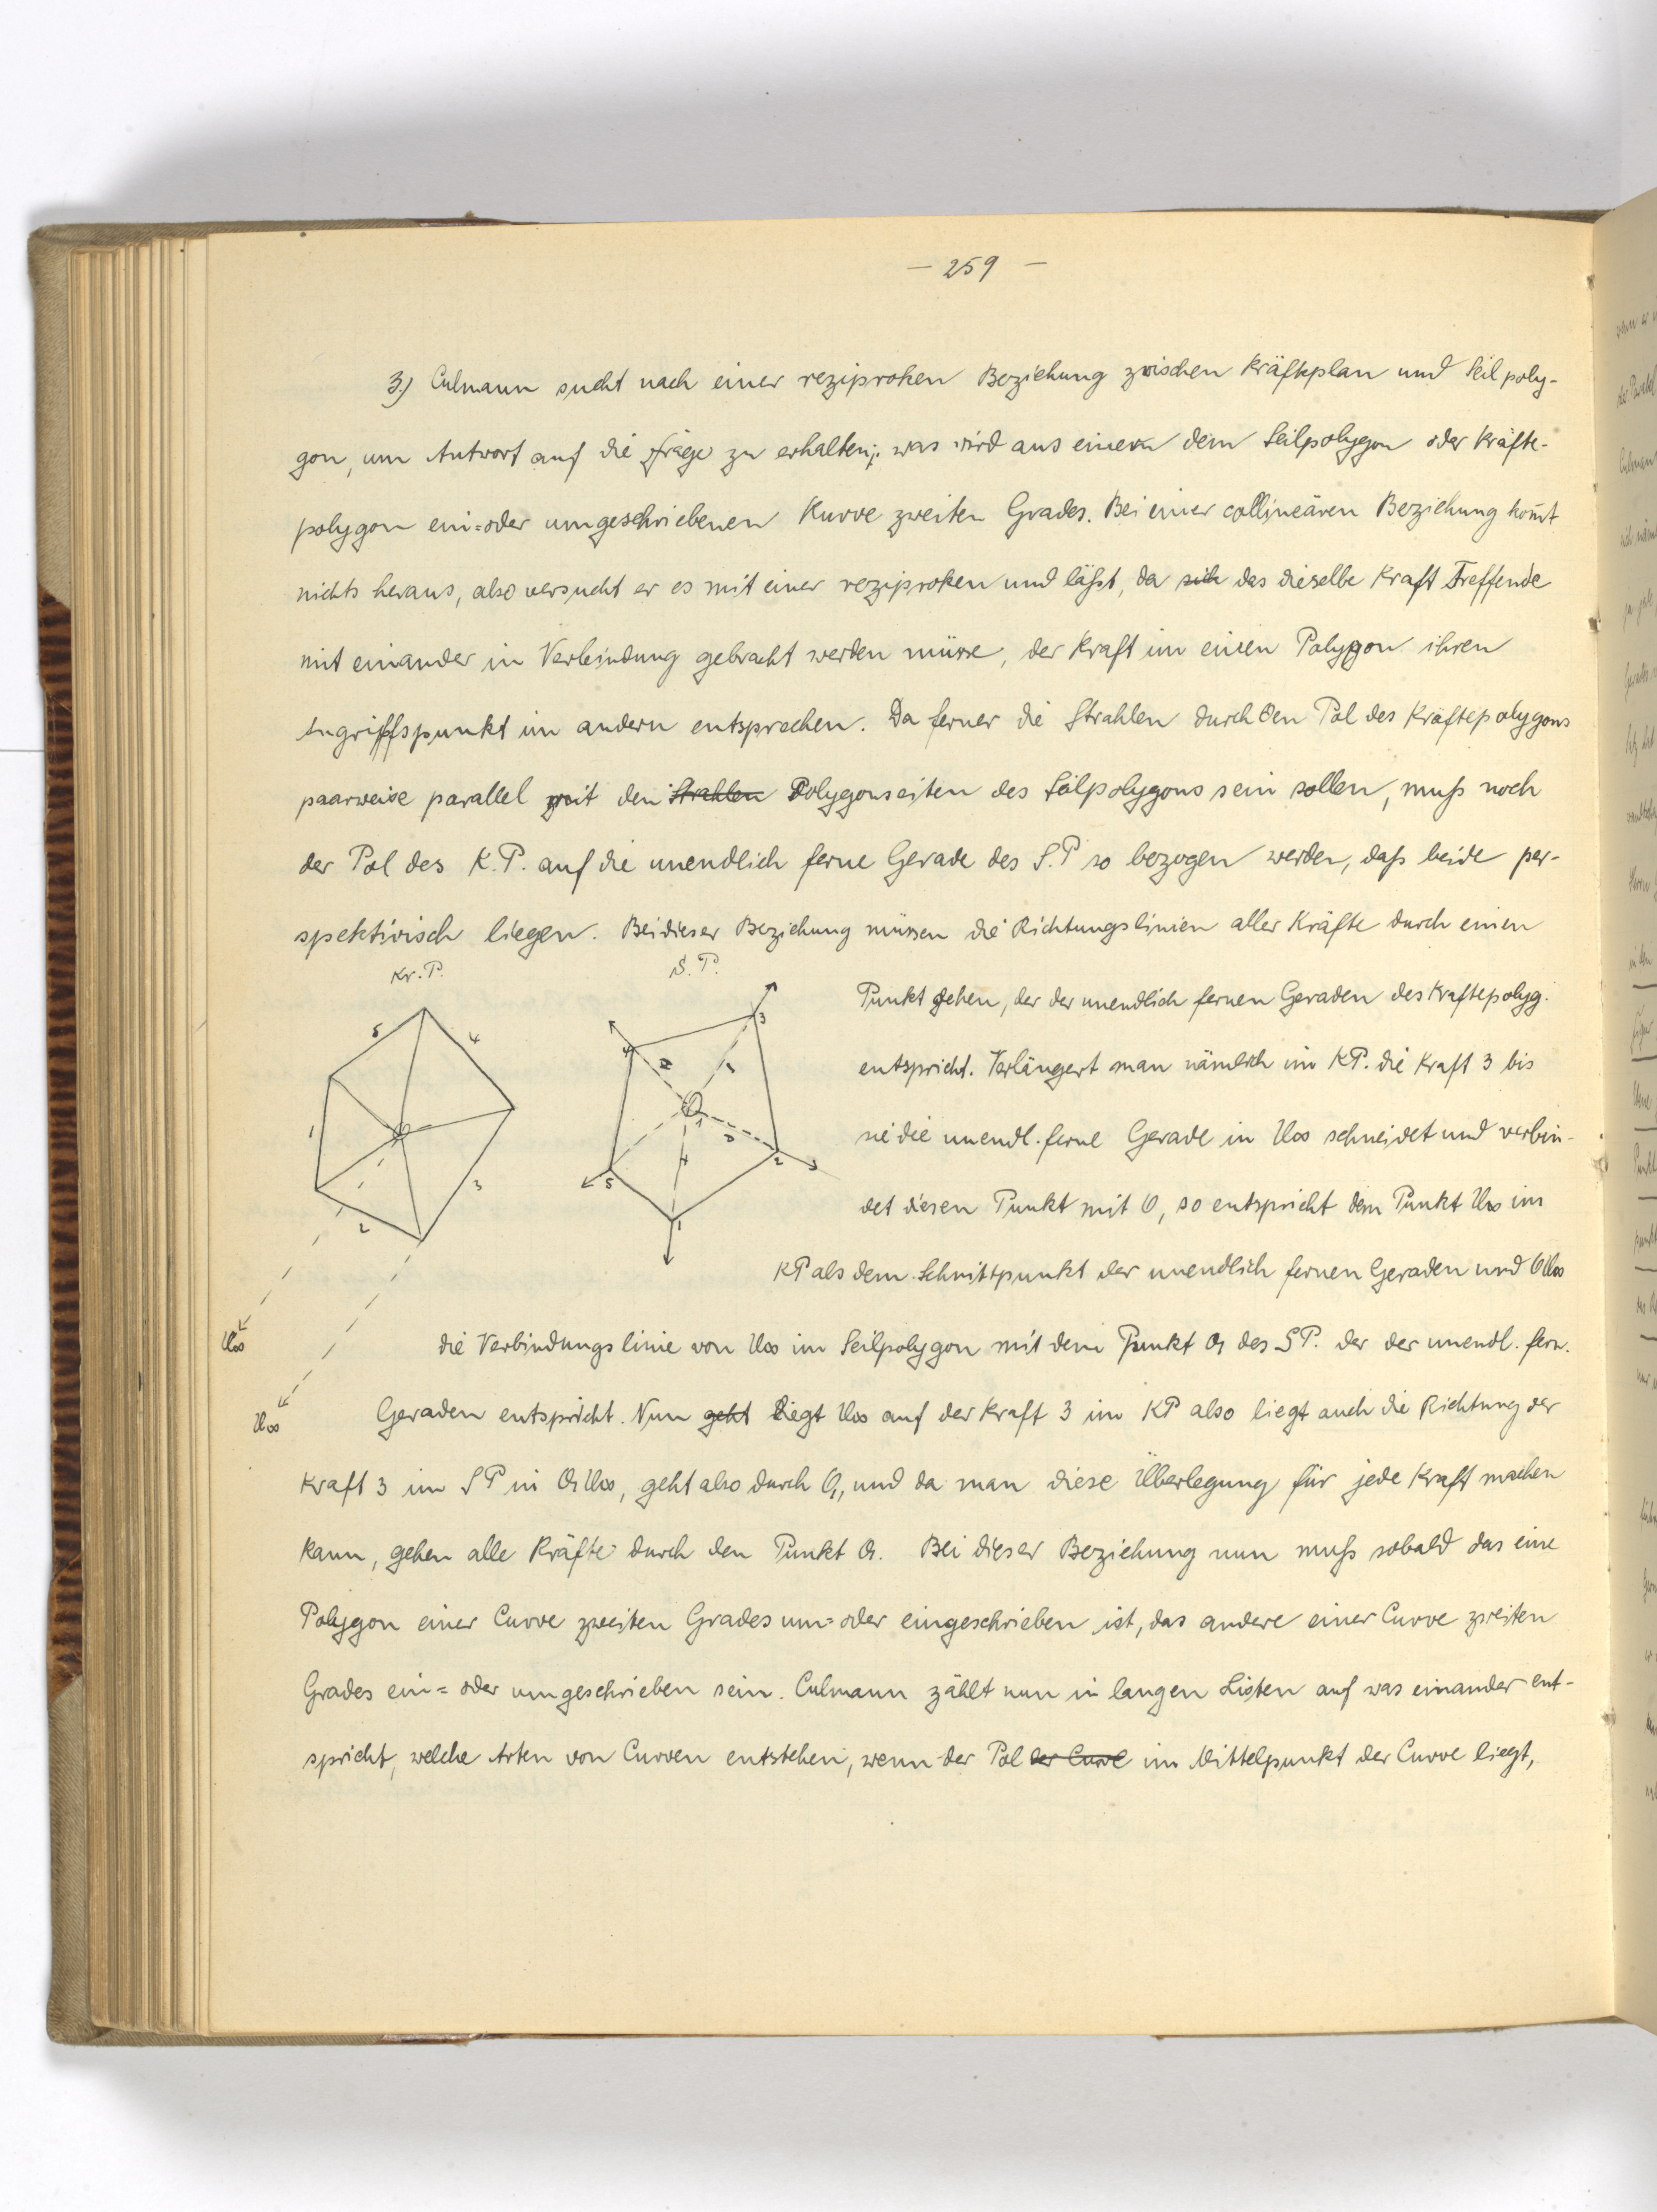 — 259 —
3) Culmann sucht nach einer reziproken Beziehung zwischen Kräfteplan und Seilpoly-
gon, um Antwort auf die Frage zu erhalten: was wird aus einer dem Seilpolygon oder Kräfte-
polygon ein= oder umgeschriebenen Kurve zweiten Grades. Bei einer collineären Beziehung kom̅t
nichts heraus, also versucht er es mit einer reziproken und läßt, da sich das dieselbe Kraft Treffende
mit einander in Verbindung gebracht werden müsse, der Kraft im einen Polygon ihren
Angriffspunkt im andern entsprechen. Da ferner die Strahlen durch den Pol des Kräftepolygons
paarweise parallel mit den Strahlen Polygonseiten des Seilpolygons sein sollen, muß noch
der Pol des K.P. auf die unendlich ferne Gerade des S.P so bezogen werden, daß beide per-
spektivisch liegen. Bei dieser Beziehung müssen die Richtungslinien aller Kräfte durch einen
Kr. P.
S. P.
Punkt gehen, der der unendlich fernen Geraden des Kraftepolyg.
entspricht. Verlängert man nämlich im KP. die Kraft 3 bis
sie die unendl. ferne Gerade in U∞ schneidet und verbin-
det diesen Punkt mit O, so entspricht dem Punkt U∞ im
KP als dem Schnittpunkt der unendlich fernen Geraden und OU∞
die Verbindungslinie von U∞ im Seilpolygon mit dem Punkt O₁ des SP. der der unendl. fern.
Geraden entspricht. Nun geht liegt U∞ auf der Kraft 3 im KP also liegt auch die Richtung der
Kraft 3 im SP in O₁U∞, geht also durch O₁, und da man diese Überlegung für jede Kraft machen
kann, gehen alle Kräfte durch den Punkt O₁. Bei dieser Beziehung nun muß sobald das eine
Polygon einer Curve zweiten Grades um= oder eingeschrieben ist, das andere einer Curve zweiten
Grades ein= oder umgeschrieben sein. Culmann zählt nun in langen Listen auf was einander ent-
spricht, welche Arten von Curven entstehen, wenn der Pol der Curve im Mittelpunkt der Curve liegt,
5
4
1
3
2
O
U∞
U∞
4
3
2
1
5
O₁